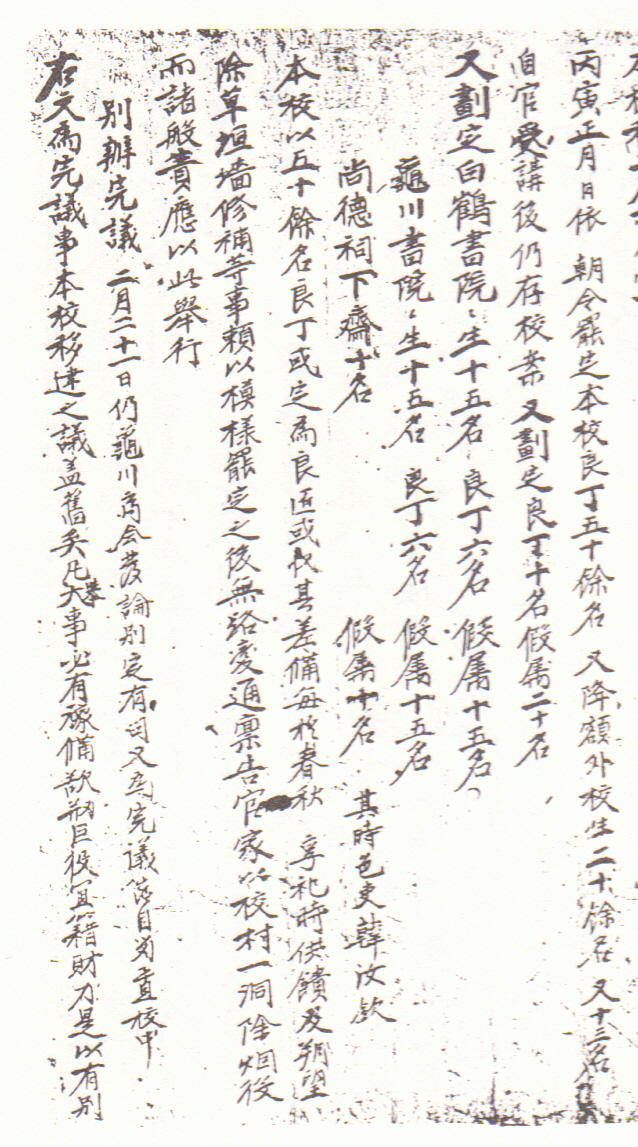 丙寅正月日依 朝令罷定本校良丁五十餘名 又降額外校生二十餘名 又十三名
自官受講後仍存校案 又劃定良丁十名假属二十名
又劃定白鶴書院〻生十五名 良丁六名 假属十五名
龜川書院〻生十五名 良丁六名 假属十五名
尚德祠下齋十名 假属十名 其時色吏韓汝欽
本校以五十餘名良丁或定為良匠或代其差備每於春秋 享祀時供饋及朔望
除草垣墻修補等事賴以模樣罷定之後無路変通稟告官家以校村一洞除烟役
而諸般責應以此舉行
別辦完議 二月二十一日仍龜川齋会發論別定有司又為完議 校中
右文為完議事本校移建之議盖舊矣凡大事必有豫備 巨役宜籍財力是以有別